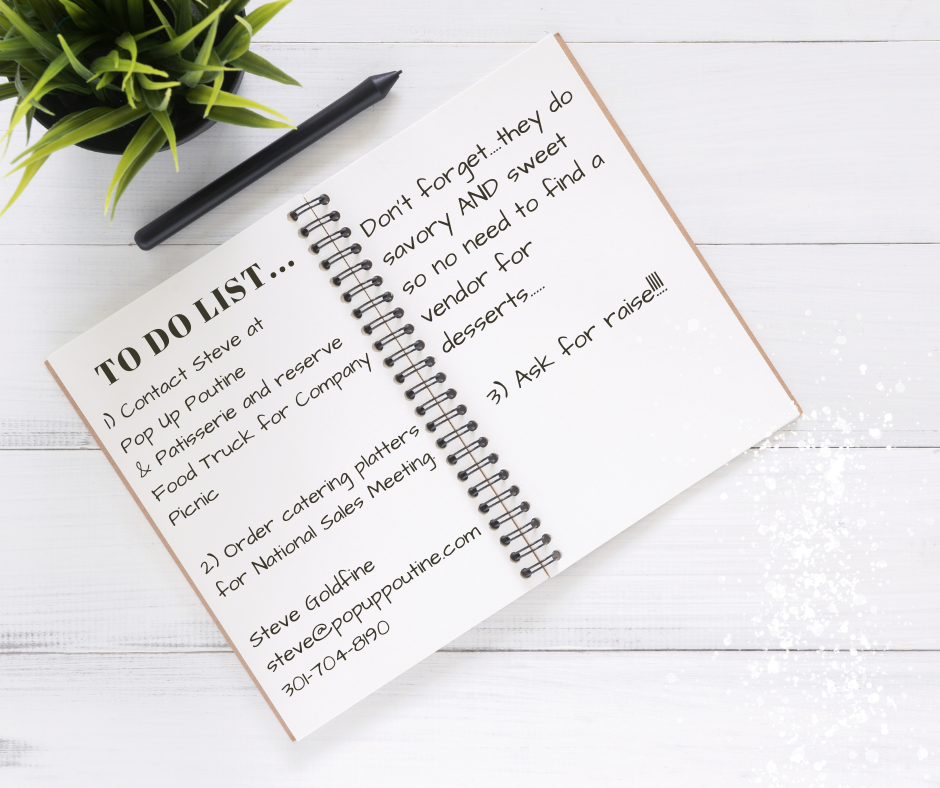 TO DO LIST...
1) Contact Steve at
Pop Up Poutine
& Patisserie and reserve
Food Truck for Company
Picnic
2) Order catering platters
for National Sales Meeting
Steve Goldfine
steve@popuppoutine.com
301-704-8190
Don't forget....they do
savory AND sweet
so no need to find a
vendor for
desserts.....
3) Ask for raise!!!!!